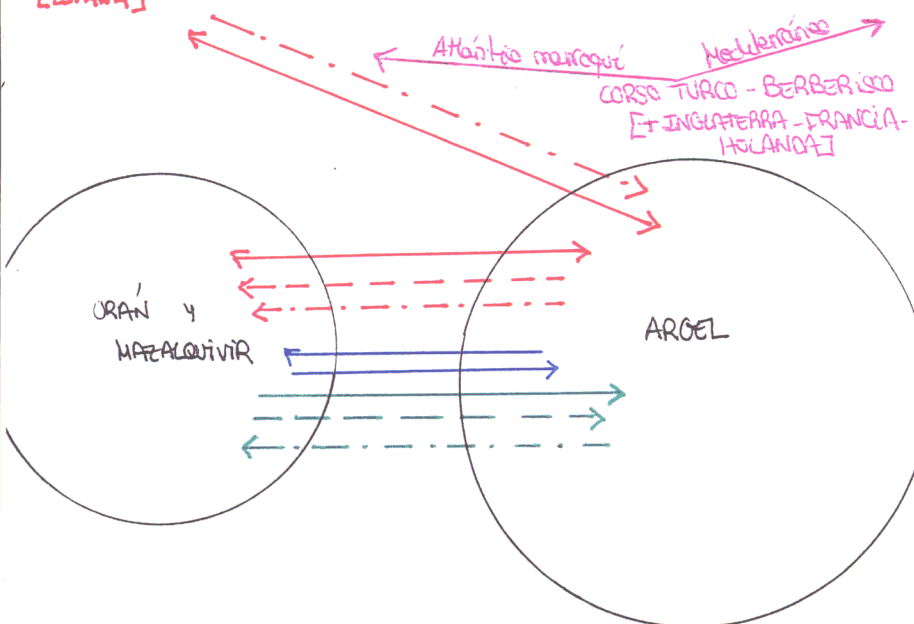 [ESPAÑA]
Atlántico marroquí
Mediterráneo
CORSO TURCO - BERBERISCO
[+ INGLATERRA - FRANCIA -
HOLANDA]
ORÁN y
MAZALQUIVIR
ARGEL